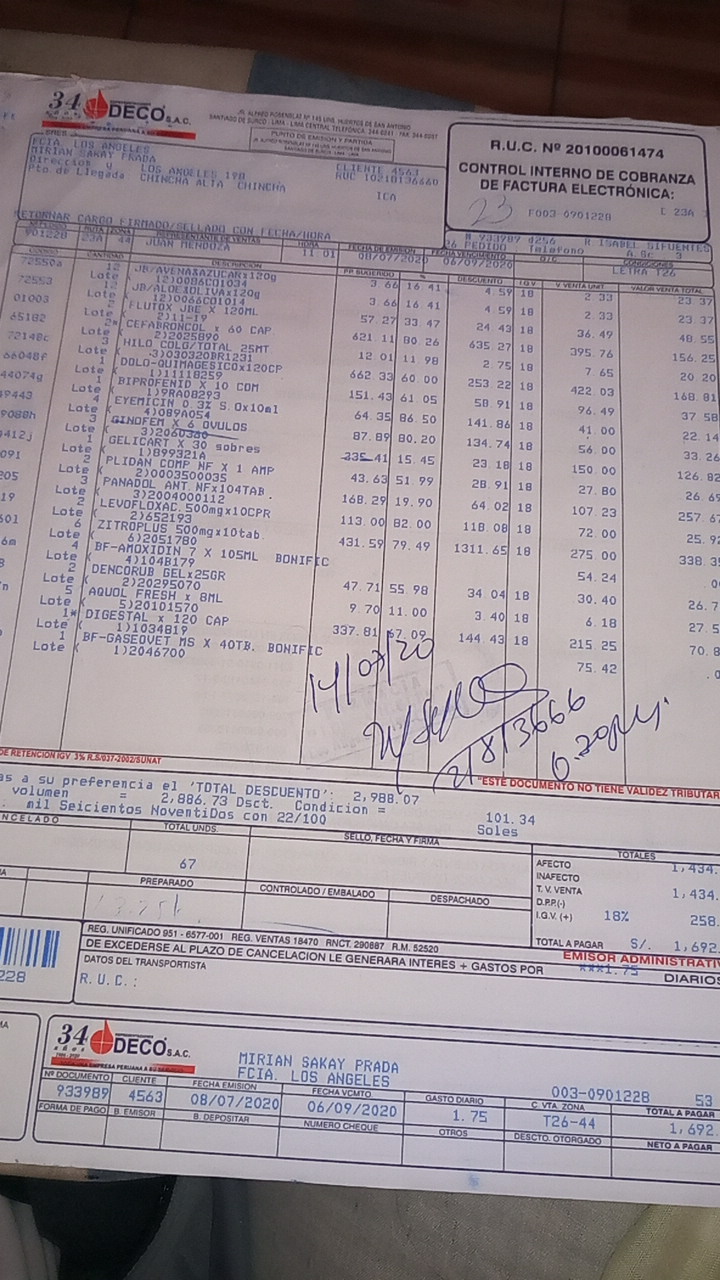 34 años DECO S.A.C.
JR. ALFREDO ROSENBLAT Nº 145 URB. HUERTOS DE SAN ANTONIO
SANTIAGO DE SURCO - LIMA - LIMA CENTRAL TELEFÓNICA
PUNTO DE EMISION Y PARTIDA
R.U.C. Nº 20100061474
CONTROL INTERNO DE COBRANZA
DE FACTURA ELECTRÓNICA:
23 F003-0901228 C 23A
FCIA. LOS ANGELES
MIRIAN SAKAY PRADA
Direccion
LOS ANGELES 190
Pto de Llegada CHINCHA ALTA CHINCHA
CLIENTE 4563
RUC 10218136660
ICA
RETORNAR CARGO FIRMADO/SELLADO CON FECHA/HORA
# 933989 d256 R. ISABEL SIFUENTES
26 PEDIDO Telefono A.Sc 3
RUTA ZONA REPRESENTANTE DE VENTAS HORA FECHA DE EMISION FECHA VENCIMIENTO O/C CONDICIONES
901228 23A 44 JUAN MENDOZA 11 01 08/07/2020 06/09/2020 LETRA T26
CODIGO CANTIDAD DESCRIPCION PR SUGERIDO % DESCUENTO I.G.V V VENTA UNIT VALOR VENTA TOTAL
72550a 12 JB/AVENA&AZUCARx120g 3.66 16 41 4.59 18 2.33 23.37
Lote ( 12)0086C01034
72553 12 JB/ALOE&OLIVAx120g 3.66 16 41 4.59 18 2.33 23.37
Lote ( 12)0066C01014
01003 2 FLUTOX JBE X 120ML 57.27 33.47 24.43 18 36.49 48.55
Lote ( 2)11-19
65182 2* CEFABRONCOL x 60 CAP 621.11 80.26 635.27 18 395.76 156.25
Lote ( 2)2025890
72148c 3 HILO COLG/TOTAL 25MT 12.01 11.98 2.75 18 7.65 20.20
Lote ( 3)030320BR1231
66048f 1 DOLO-QUIMAGESICOx120CP 662.33 60.00 253.22 18 422.03 168.81
Lote ( 1)11118259
44074g 1 BIPROFENID X 10 COM 151.43 61.05 58.91 18 96.49 37.58
Lote ( 1)9RA08293
49443 4 EYEMICIN 0.3% S.Ox10ml 64.35 86.50 141.86 18 41.00 22.14
Lote ( 4)089A054
9088h 3 GINOFEM X 6 OVULOS 87.89 80.20 134.74 18 56.00 33.26
Lote ( 3)2060380
412j 1 GELICART X 30 sobres 235.41 15.45 23.18 18 150.00 126.82
Lote ( 1)B99321A
091 2 PLIDAN COMP NF X 1 AMP 43.63 51.99 28.91 18 27.80 26.6
Lote ( 2)0003500035
205 3 PANADOL ANT.NFx104TAB. 168.29 19.90 64.02 18 107.23 257.6
Lote ( 3)2004000112
19 2 LEVOFLOXAC.500mgx10CPR 113.00 82.00 118.08 18 72.00 25.9
Lote ( 2)652193
601 6 ZITROPLUS 500mgx10tab. 431.59 79.49 1311.65 18 275.00 338.3
Lote ( 6)2051780
6m 4 BF-AMOXIDIN 7 X 105ML BONIFIC 54.24 .0
Lote ( 4)104B179
2 DENCORUB GELx25GR 47.71 55.98 34 04 18 30.40 26.7
Lote ( 2)20295070
5 AQUOL FRESH x 8ML 9.70 11.00 3.40 18 6.18 27.5
Lote ( 5)20101570
1* DIGESTAL x 120 CAP 337.81 67.09 144.43 18 215.25 70.8
Lote ( 1)1034819
1 BF-GASEOVET MS X 40TB. BONIFIC 75.42 .0
Lote ( 1)2046700
14/07/20
21813666
6.20pm.
DE RETENCION IGV 3% R.S/037-2002/SUNAT
"ESTE DOCUMENTO NO TIENE VALIDEZ TRIBUTAR
as a su preferencia el 'TOTAL DESCUENTO': 2,988.07
volumen = 2,886.73 Dsct. Condicion = 101.34
mil Seicientos NoventiDos con 22/100 Soles
NCELADO TOTAL UNDS. SELLO, FECHA Y FIRMA TOTALES
67
AFECTO 1,434.
INAFECTO
T. V. VENTA 1,434.
D.P.P.(-)
I.G.V. (+) 18% 258.
TOTAL A PAGAR S/. 1,692.
PREPARADO CONTROLADO / EMBALADO DESPACHADO
EMISOR ADMINISTRATIV
REG. UNIFICADO 951 - 6577-001 REG. VENTAS 18470 RNCT. 290887 R.M. 52520
DE EXCEDERSE AL PLAZO DE CANCELACION LE GENERARA INTERES + GASTOS POR ***1.75 DIARIOS
DATOS DEL TRANSPORTISTA
R.U.C.:
228
34 años DECO S.A.C.
MIRIAN SAKAY PRADA
FCIA. LOS ANGELES
003-0901228 53
Nº DOCUMENTO CLIENTE FECHA EMISION FECHA VCMTO GASTO DIARIO C. VTA. ZONA TOTAL A PAGAR
933989 4563 08/07/2020 06/09/2020 1.75 T26-44 1,692.
FORMA DE PAGO B. EMISOR B. DEPOSITAR NUMERO CHEQUE OTROS DESCTO. OTORGADO NETO A PAGAR